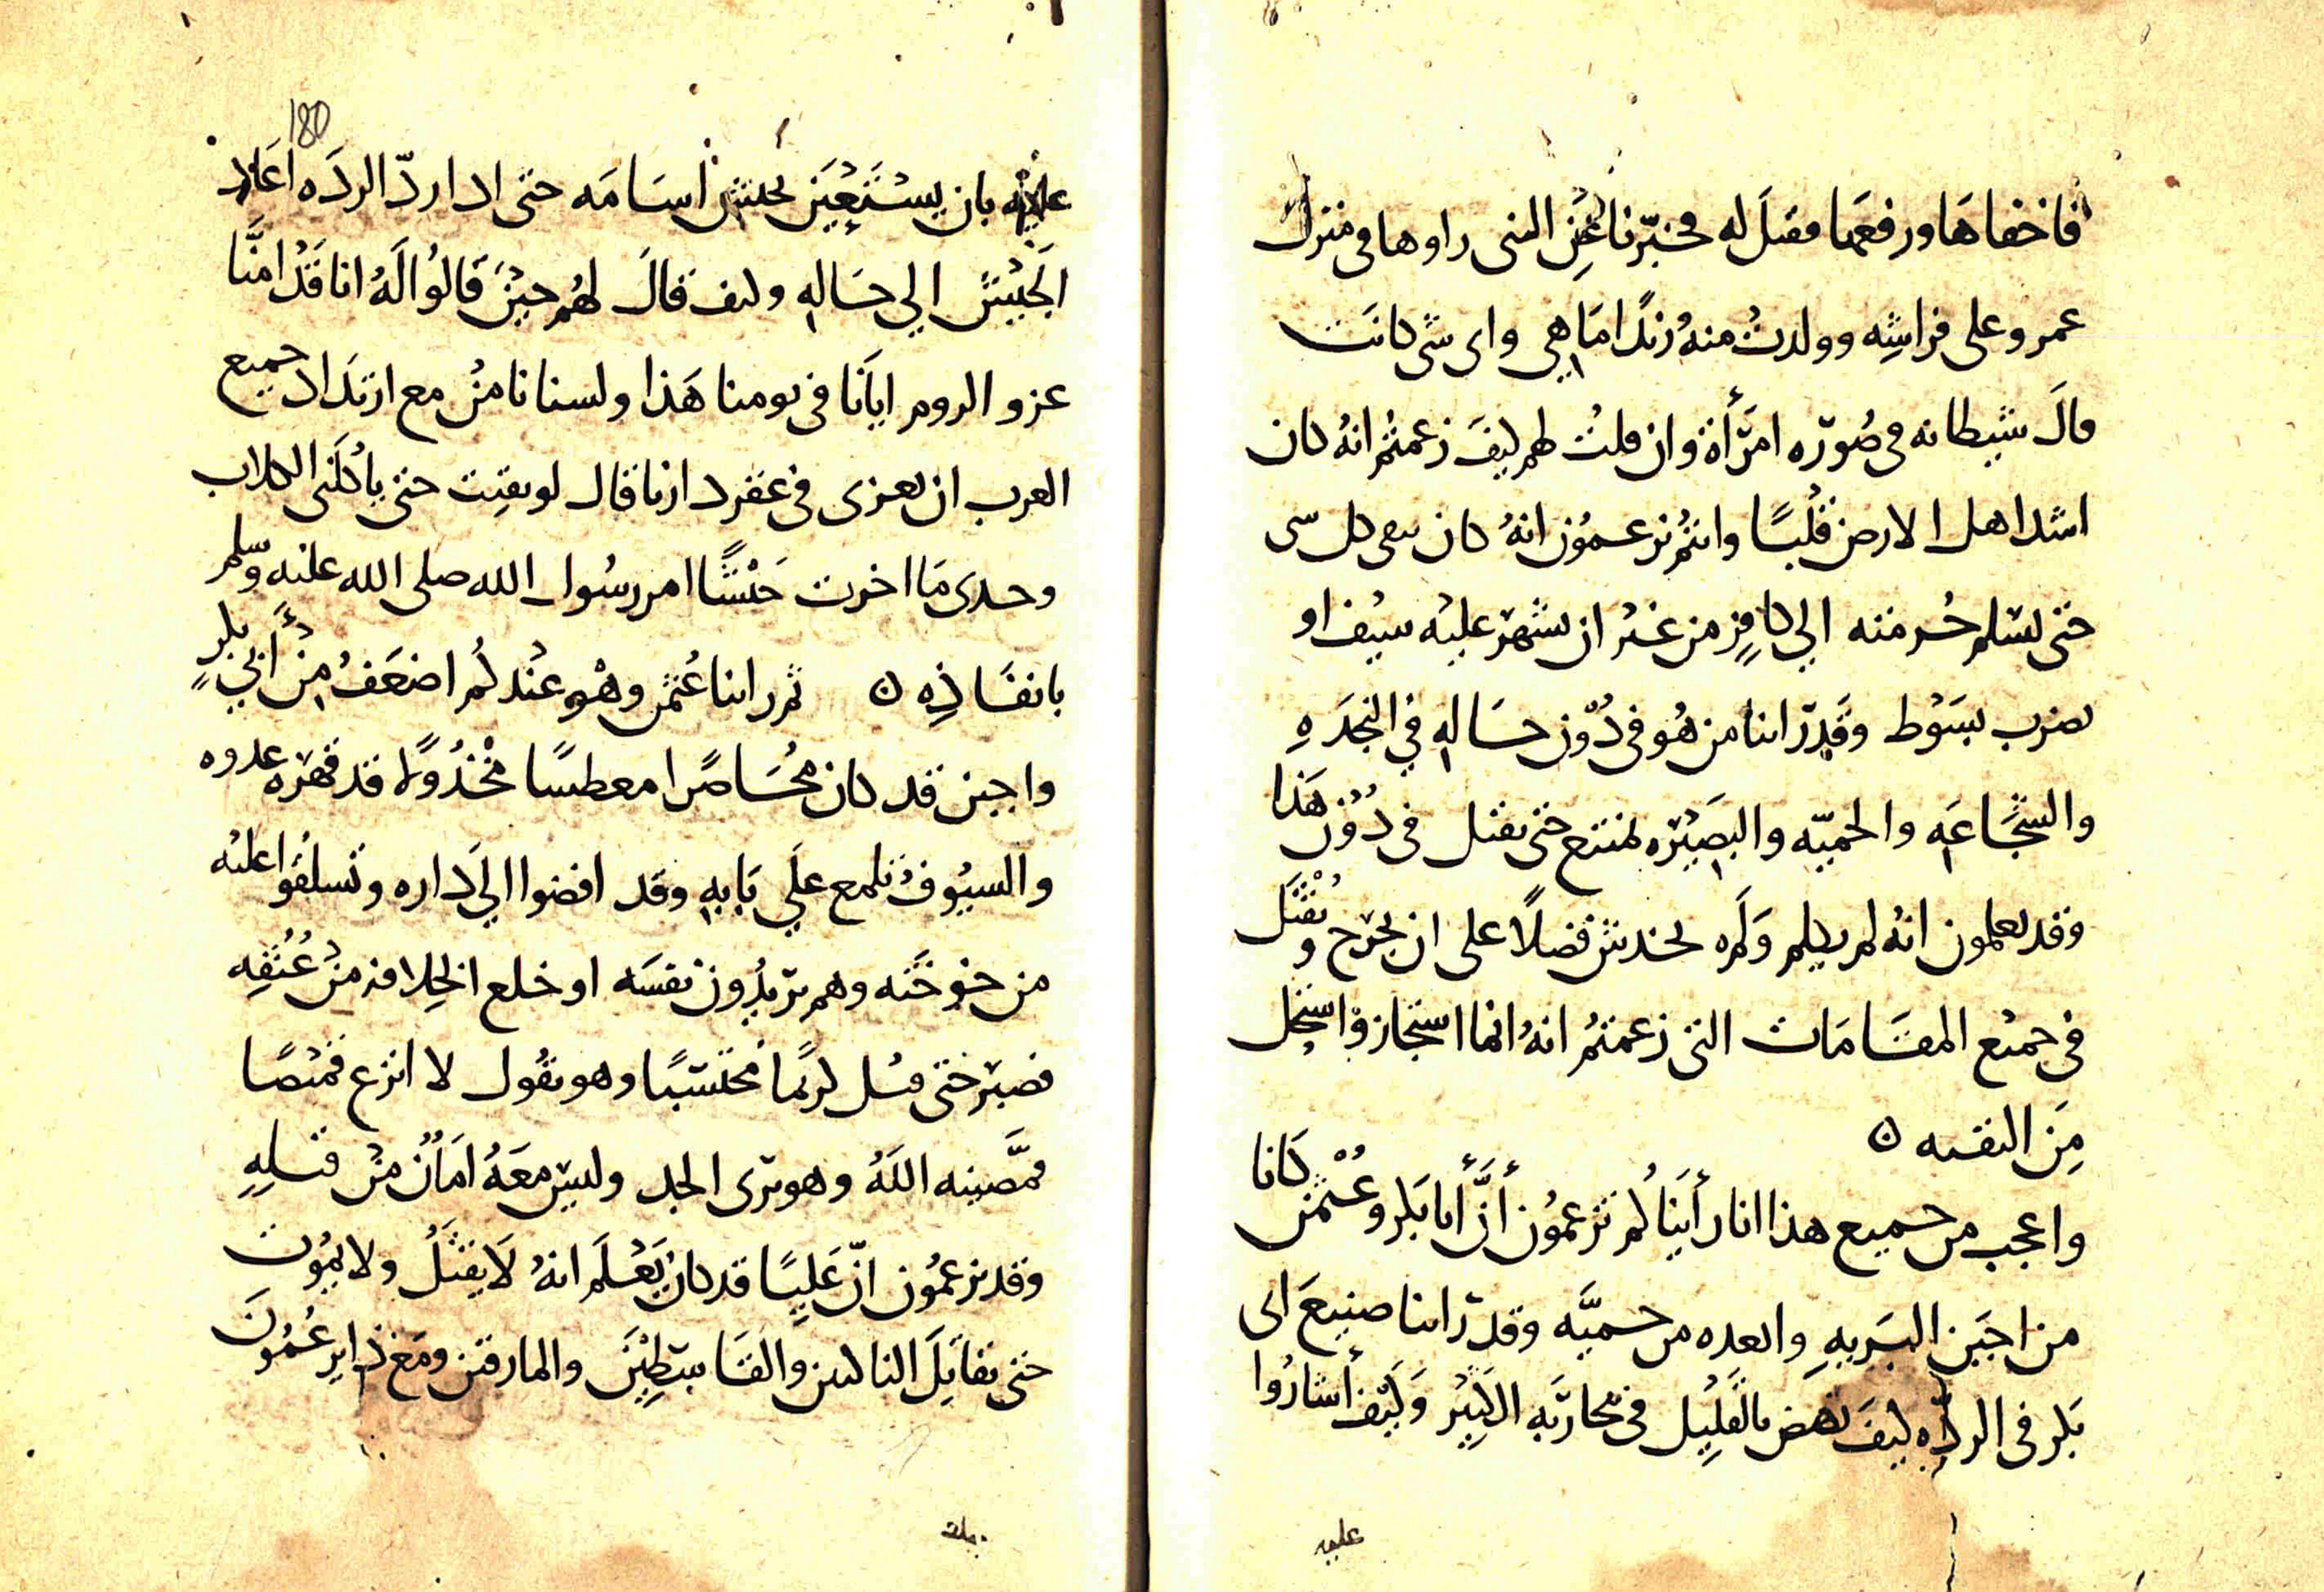 فاخفاها ورفعها فقيل له فخبرنا عن التي راوها في منزل
عمرو على فراشه وولدت منه زندا ما هي واي شي كانت
قال شيطانه في صورة امرأة وان قلت لهم كيف زعمتم انه كان
اشد اهل الارض قلبا وانتم تزعمون انه كان يتقي كل شي
حتى يسلم حرمته الي كافر من غير ان يشهر عليه سيف او
يضرب بسوط وقد راينا من هو في دون حاله في النجده
والشجاعه والحميه والبصيره يمتنع حتى يقتل في دون هذا
وقد يعلمون انه لم يكلم ولم يخدش فضلا على ان يجرح ويقتل
في جميع المقامات التي زعمتم انه انما استجاز واستحل
من التقيه ه
واعجب من جميع هذا انا رأيناكم تزعمون أن أبا بكر وعثمن كانا
من اجبن البريه وابعده من حميه وقد راينا صنيع ابي
بكر في الرده كيف نهض بالقليل في محاربة الكثير وكيف أشاروا
عليه
180
عليه بان يستعين بجيش اسامه حتى اذا رد الرده اعاد
الجيش الي حاله وكيف قال لهم حين قالوا له انا قد امنا
غزو الروم ايانا في يومنا هذا ولسنا نامن مع ارتداد جميع
العرب ان نغزى في عقر دارنا قال لو بقيت حتى ياكلني الكلاب
وحدي ما اخرت جيشا امر رسول الله صلى الله عليه وسلم
بانفاذه ه ثم راينا عثمن وهو عندكم اضعف من أبي بكر
واجبن قد كان محاصرا معطشا مخذولا قد قهره عدوه
والسيوف تلمع علي بابه وقد افضوا الي داره وتسلقوا عليه
من خوخته وهم يريدون نفسه او خلع الخلافه من عنقه
فصبر حتى قتل كريما محتسبا وهو يقول لا انزع قميصا
قمصنيه الله وهو يرى الجد وليس معه امان من قتله
وقد يزعمون ان عليا قد كان يعلم انه لا يقتل ولا يموت
حتى يقاتل الناكثين والقاسطين والمارقين ومع ذا يزعمون